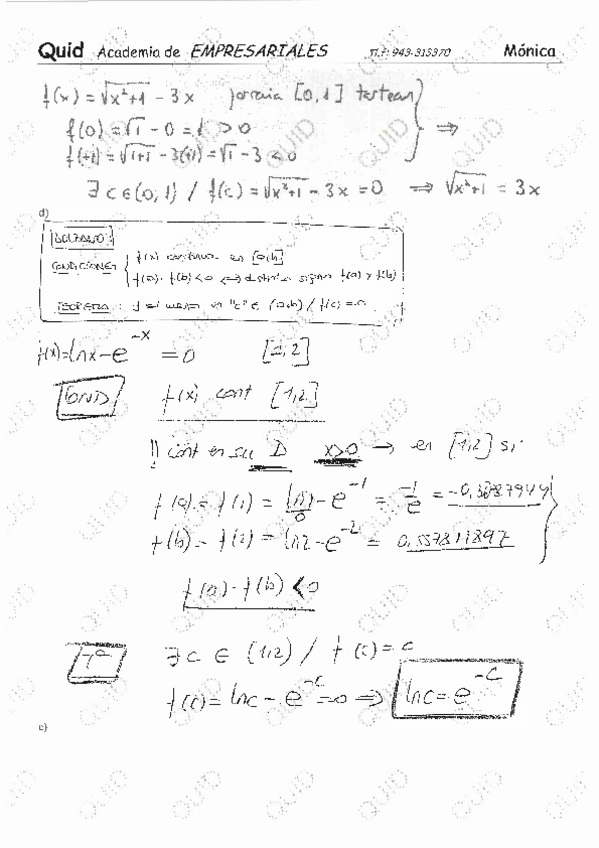 Quid Academia de EMPRESARIALES Tl.f: 943-313370 Mónica
f(x) = √x²+1 - 3x [0,1]
f(0) = √1 - 0 = 1 > 0
f(+1) = √1+1 - 3(+1) = √1 - 3 < 0 ⟹
∃ c ∈ (0,1) / f(c) = √x²+1 - 3x = 0 ⟹ √x²+1 = 3x
d)
BOLZANO:
CONDICIONES { f(x) continua en [a,b]
f(a)·f(b) < 0 ⟺ distinto signo f(a) y f(b)
TEOREMA: "c" ∈ (a,b) / f(c) = 0
f(x) = ln x - e^-x = 0 [1,2]
COND f(x) cont [1,2]
cont en su D x>0 → en [1,2] sí
f(a) = f(1) = ln 1 - e^-1 = -1/e =
0
f(b) = f(2) = ln 2 - e^-2 = 0,557811897
f(a)·f(b) < 0
Tª ∃ c ∈ (1,2) / f(c) = 0
f(c) = ln c - e^-c = 0 ⟹ ln c = e^-c
e)